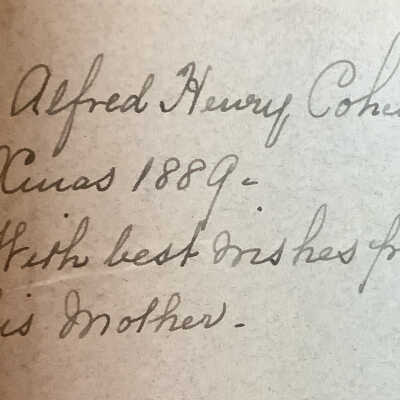 Alfred Henry
Xmas 1889-
With best wishes
his Mother-